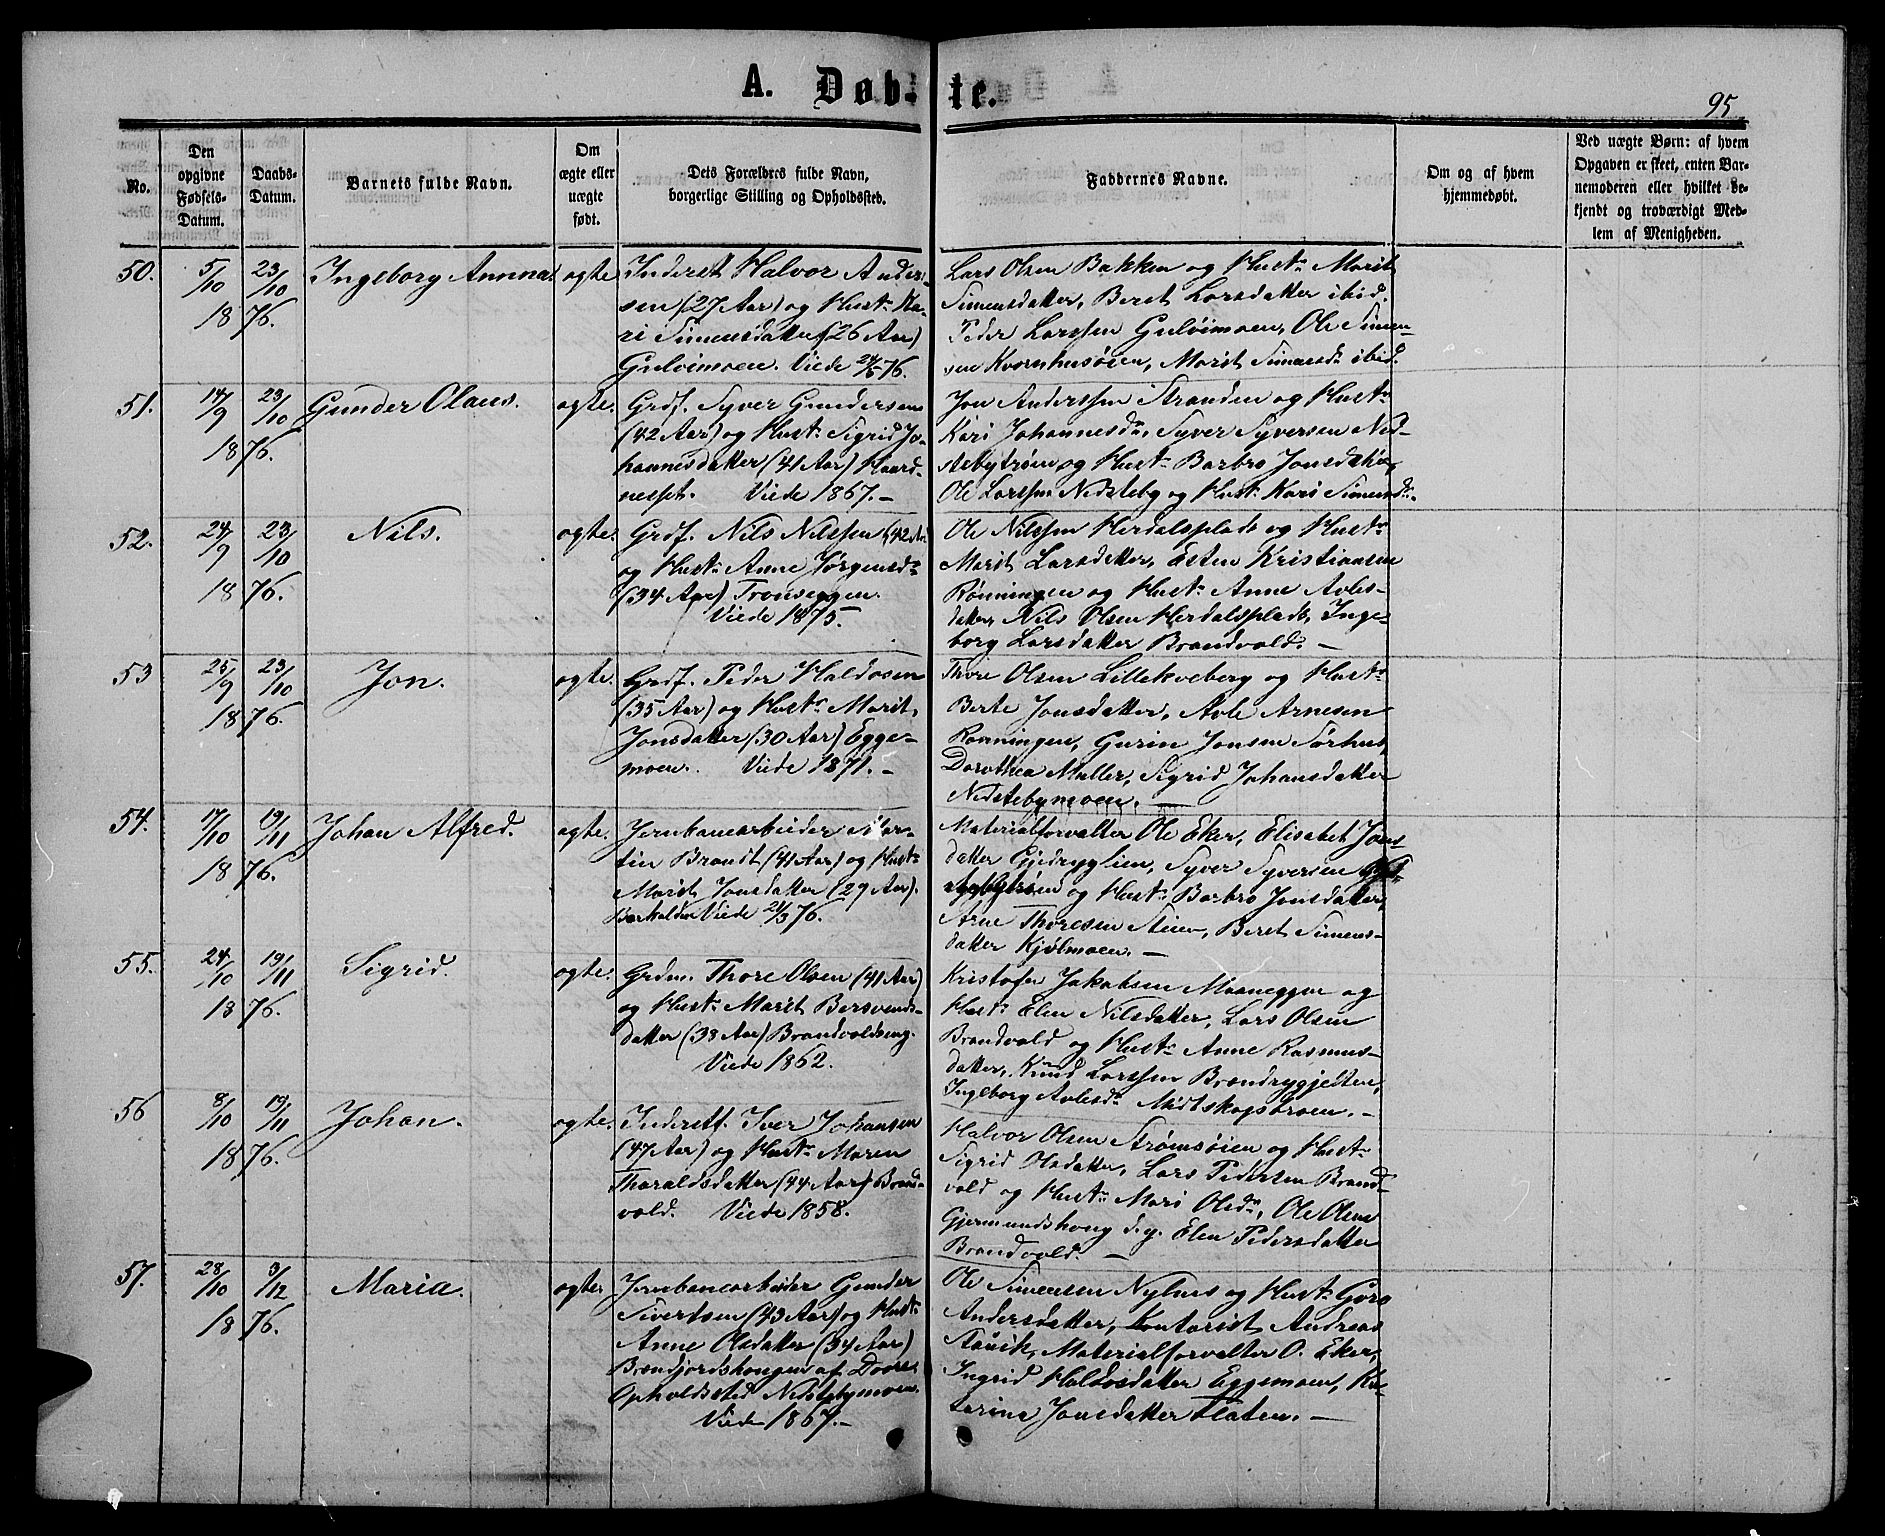 A. Døbte.
95.
No.
Den
opgivne
Fødsels-
Datum.
Daabs-
Datum.
Barnets fulde Navn.
Om
ægte eller
uægte
født.
Dets Forældres fulde Navn,
borgerlige Stilling og Opholdssted.
Faddernes Navne.
Om og af hvem
hjemmedøbt.
Ved uægte Børn: af hvem
Opgaven er skeet, enten Bar-
nemoderen eller hvilket be-
kjendt og troværdigt Med-
lem af Menigheden.
50.
5/10
1876.
23/10
Ingeborg Annna
ægte
Inderst Halvor Anders-
sen (27 Aar) og Hustr. Ma-
ri Simensdatter (26 Aar)
Gulvimoen. Viede 76.
Lars Olsen Bakken og Hustr. Marit
Simensdatter, Beret Larsdatter ibid.
Peder Larssen Gulvimoen, Ole Simen-
sen Kvornhusøien, Marit Simensdr. ibid.
51.
14/9
1876.
23/10
Gunder Olaus.
ægte.
Grdf. Syver Gundersen
(42 Aar) og Hustr. Sigrid Jo-
hannesdatter (41 Aar) Haard-
nesset. Viede 1867. –
Jon Anderssen Stranden og Hustr.
Kari Johannesdr., Syver Syversen Ned-
stebytrøen og Hustr. Barbro Jonsdatter,
Ole Larssen Nedsteby og Hustr. Kari Simensdr.
52.
24/9
1876.
23/10
Nils.
ægte.
Grdf. Nils Nilssen (42 Ar)
og Hustr. Anne Jørgensdr.
(34 Aar) Tronseggen.
Viede 1875.
Ole Nilssen Herdalsplads og Hustr.
Marit Larsdatter, Esten Kristiansen
Rønningen og Hustr. Anne Avles-
datter, Nils Olsen Herdalsplads, Inge-
borg Larsdatter Brandvold. –
53
25/9
1876.
23/10
Jon.
ægte.
Grdf. Peder Haldosen
(35 Aar) og Hustr. Marit
Jonsdatter (30 Aar) Egge-
moen. Viede 1871. –
Thore Olsen Lillekveberg og Hustr.
Berte Jonsdatter, Avle Arnesen
Rønningen, Gurin Jonsen Sørhus,
Dorothea Muller, Sigrid Johansdatter
Nedstebymoen. –
54.
17/10
1876.
19/11
Johan Alfred.
ægte.
Jernbanearbeider Mar-
tin Brandt (41 Aar) og Hustr.
Marit Jonsdatter (29 Aar).
Viede 21/3 76.
Materialforvalter Ole Eker, Elisabet Jons-
datter Gjedryglien, Syver Syversen
og Hustr. Barbro Jonsdatter,
Arne Thoresen Steien, Beret Simens-
datter Kjølmoen. –
55.
24/10
1876.
19/11
Sigrid.
ægte.
Grdm. Thore Olsen (41 Aar)
og Hustr. Marit Bersvends-
datter (38 Aar) Brandvoldseng.
Viede 1862.
Kristofer Jakobsen Moaneggen og
Hustr. Elen Nilsdatter, Lars Olsen
Brandvold og Hustr. Anne Rasmus-
datter, Knud Larssen Brandryggjelten,
Ingeborg Avlesdr. Midtskogsbroen. –
56
8/10
1876.
19/11
Johan.
ægte.
Inderst. Iver Johansen
(47 Aar) og Hustr. Maren
Tharaldsdatter (44 Aar) Brand-
vold. Viede 1858.
Halvor Olsen Strømsøien og Hustr.
Sigrid Olsdatter, Lars Pedersen Brand-
vold og Hustr. Mari Olsdr., Ole Olsen
Gjermundshaug d.y. Elen Pedersdatter
Brandvold. –
57.
28/10
1876.
3/12
Maria.
ægte.
Jernbanearbeider Gunder
Sivertsen (43 Aar) og Hustr.
Anne Olsdatter (34 Aar)
Brandfjordshaugen af Dovre.
Opholdssted Nedstebymoen.
Viede 1867. –
Ole Simensen Nyhus og Hustr. Goro
Andersdatter, Kontorist Andreas
Støvik, Materialforvalter O. Eker,
Ingrid Haldosdatter Eggemoen, Ka-
tarina Jonsdatter Flaten. –